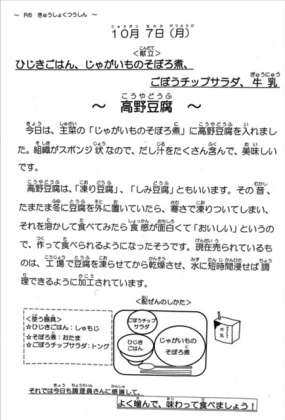 ～ R6 きゅうしょくつうしん ～
10月 7日(月)
<献立>
ひじきごはん、じゃがいものそぼろ煮、
ごぼうチップサラダ、牛乳
～ 高野豆腐 ～
今日は、主菜の「じゃがいものそぼろ煮」に高野豆腐を入れまし
た。組織がスポンジ状なので、だし汁をたくさん含んで、美味しい
です。
高野豆腐は、「凍り豆腐」、「しみ豆腐」ともいいます。その昔、
たまたま冬に豆腐を外に置いていたら、寒さで凍りついてしまい、
それを溶かして食べてみたら食感が面白くて「おいしい」というの
で、作って食べられるようになったそうです。現在売られているも
のは、工場で豆腐を凍らせてから乾燥させ、水に短時間浸せば調
理できるように加工されています。
<配ぜんのしかた>
<使う器具>
☆ひじきごはん：しゃもじ
☆そぼろ煮：おたま
☆ごぼうチップサラダ：トング
ごぼうチップ
サラダ
ひじき
ごはん
じゃがいもの
そぼろ煮
それでは今日も調理員さんに感謝して、
よく噛んで、味わって食べましょう！